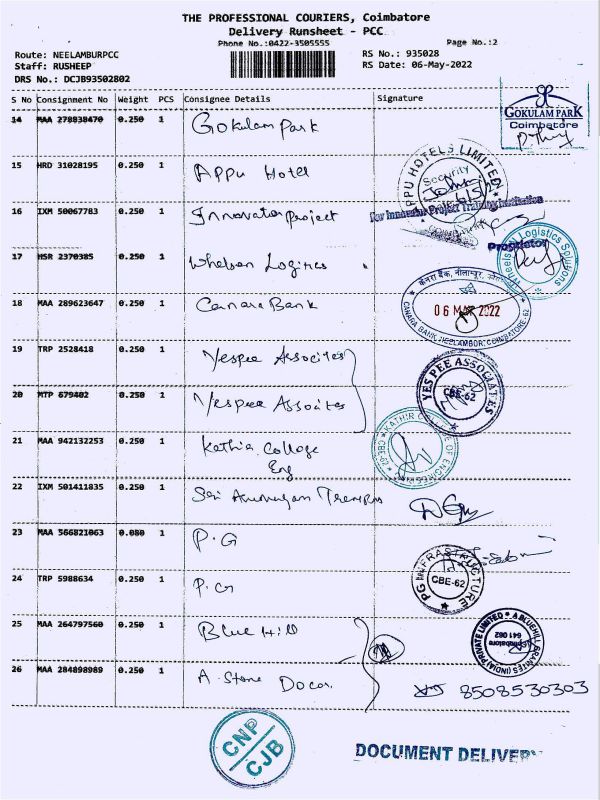 THE PROFESSIONAL COURIERS, Coimbatore
Delivery Runsheet - PCC
Phone No.:0422-3505555
Page No.:2
Route: NEELAMBURPCC
RS No.: 935028
Staff: RUSHEEP
RS Date: 06-May-2022
DRS No.: DCJB93502802
S No Consignment No Weight PCS Consignee Details Signature
14 MAA 278838470 0.250 1 Gokulam Park
GOKULAM PARK
Coimbatore
15 HRD 31028195 0.250 1 Appu Hotel
APPU HOTELS LIMITED
Security
16 IXM 50067783 0.250 1 Innovator project
for Innovator Project Training Institution
Proprietor
17 HSR 2370385 0.250 1 Whelson Logitics
Wheels Logistics Solutions
18 MAA 289623647 0.250 1 Canara Bank
केनरा बैंक, नीलाम्बूर
06 MAY 2022
CANARA BANK, NEELAMBUR, COIMBATORE-62
19 TRP 2528418 0.250 1 Yespee Associates
20 MTP 679402 0.250 1 Yespee Assocites
YES PEE ASSOCIATES
CBE-62
21 MAA 942132253 0.250 1 Kathir College
Eng
KATHIR COLLEGE OF ENGINEERING
CBE-62
22 IXM 501411835 0.250 1 Sri Arumugam
23 MAA 566821063 0.080 1 P.G
24 TRP 5988634 0.250 1 P.G
PG INFRASTRUCTURE
CBE-62
25 MAA 264797560 0.250 1 Blue Hill
A BLUEHILL GRANITES (INDIA) PRIVATE LIMITED
641 062
26 MAA 284898989 0.250 1 A. Stone Docor
8508530303
CNP
CJB
DOCUMENT DELIVERY